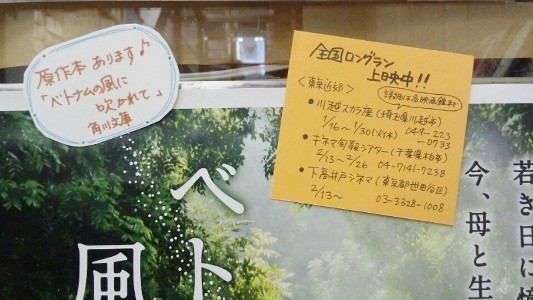 原作本 あります♪
「ベトナムの風に
吹かれて」
角川文庫
全国ロングラン
上映中!!
〈東京近郊〉
詳細は各映画館まで
●川越スカラ座(埼玉県川越市)
1/16〜1/30(火休) 049-223
-0733
●キネマ旬報シアター(千葉県柏市)
2/13〜2/26 04-7141-7238
●下高井戸シネマ(東京都世田谷区)
2/13〜 03-3328-1008
ベト
風
若き日に
今、母と生